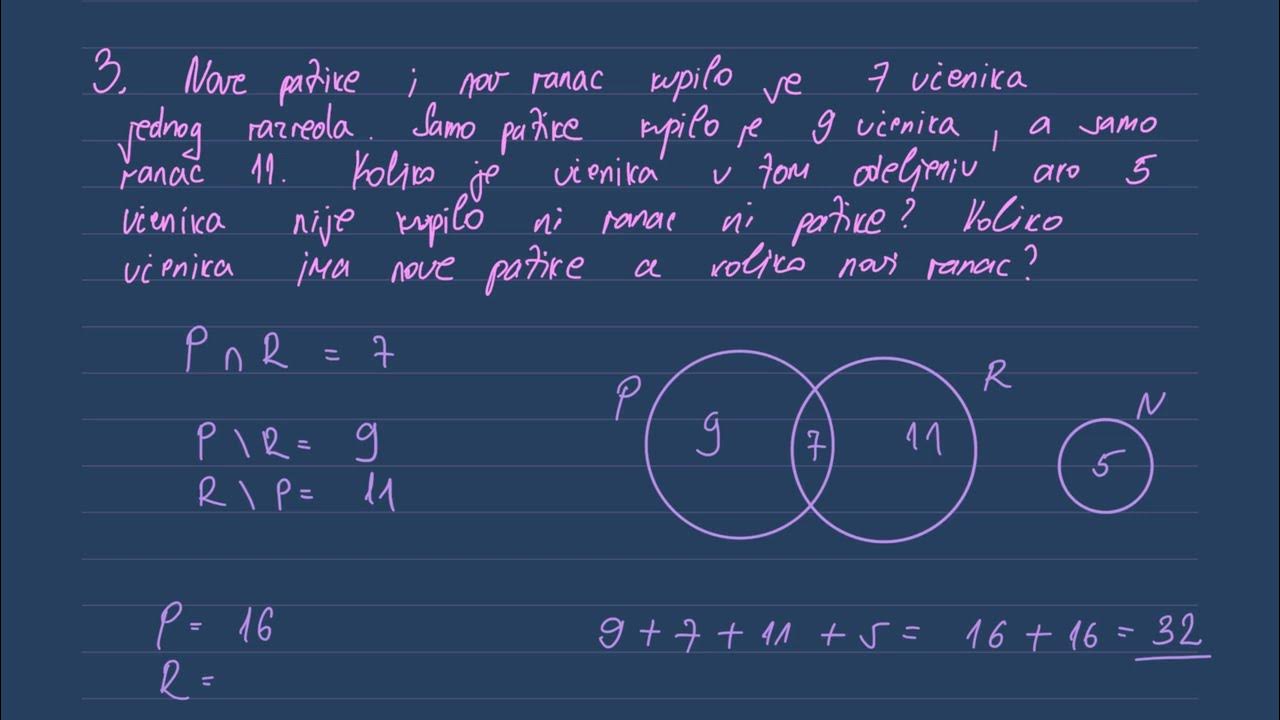 3. Nove patike i nov ranac kupilo je 7 učenika
jednog razreda. Samo patike kupilo je 9 učenika, a samo
ranac 11. Koliko je učenika u tom odeljenju ako 5
učenika nije kupilo ni ranac ni patike? Koliko
učenika ima nove patike a koliko novi ranac?
P ∩ R = 7
P \ R = 9
R \ P = 11
P
9
7
11
R
N
5
P = 16
R =
9 + 7 + 11 + 5 = 16 + 16 = 32